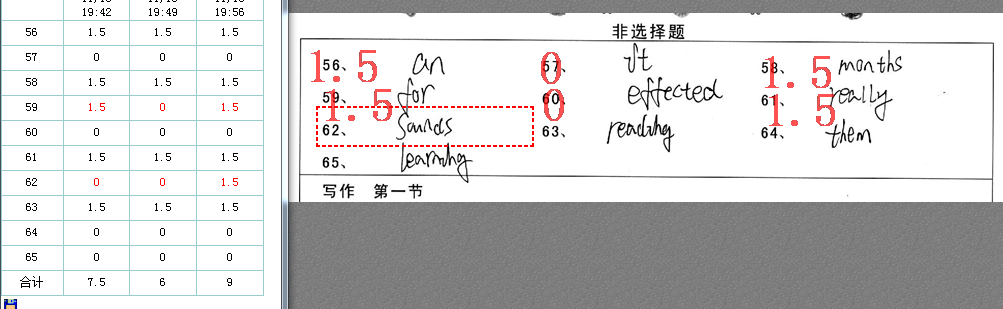 19:42 19:49 19:56
56 1.5 1.5 1.5
57 0 0 0
58 1.5 1.5 1.5
59 1.5 0 1.5
60 0 0 0
61 1.5 1.5 1.5
62 0 0 1.5
63 1.5 1.5 1.5
64 0 0 0
65 0 0 0
合计 7.5 6 9
非选择题
56、 1.5 an 57、 0 It 58、 1.5 months
59、 1.5 for 60、 0 effected 61、 1.5 really
62、 Sounds 63、 reading 64、 them
65、 learning
写作 第一节